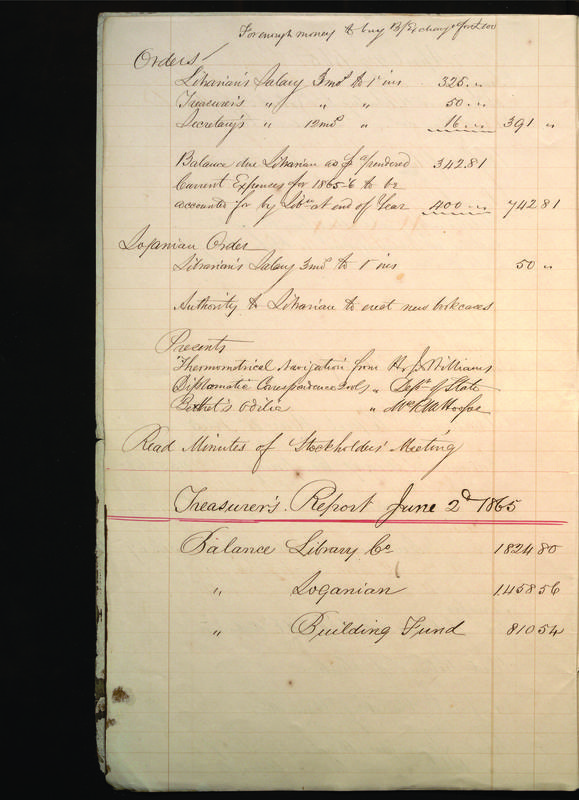 For enough money to buy B/Exchange for £100
Orders
Librarian's Salary 3 mos to 1st ins 325 〃
Treasurer's 〃 〃 〃 50 〃
Secretary's 〃 12 mos 〃 16 〃 391 〃
Balance due Librarian as pr a/ rendered 342.81
Current Expenses for 1865-6 to be
accounted for by Libn at end of Year 400 〃 742 81
Loganian Order
Librarian's Salary 3 mos to 1st ins 50 〃
Authority to Librarian to erect new bookcases
Presents
Thermometrical Navigation from H. J. Williams
Diplomatic Correspondence vols 〃 Dept of State
〃
Read Minutes of Stockholders' Meeting
Treasurer's Report June 2d 1865
Balance Library Co 1824 80
〃 Loganian 1458 56
〃 Building Fund 810 54